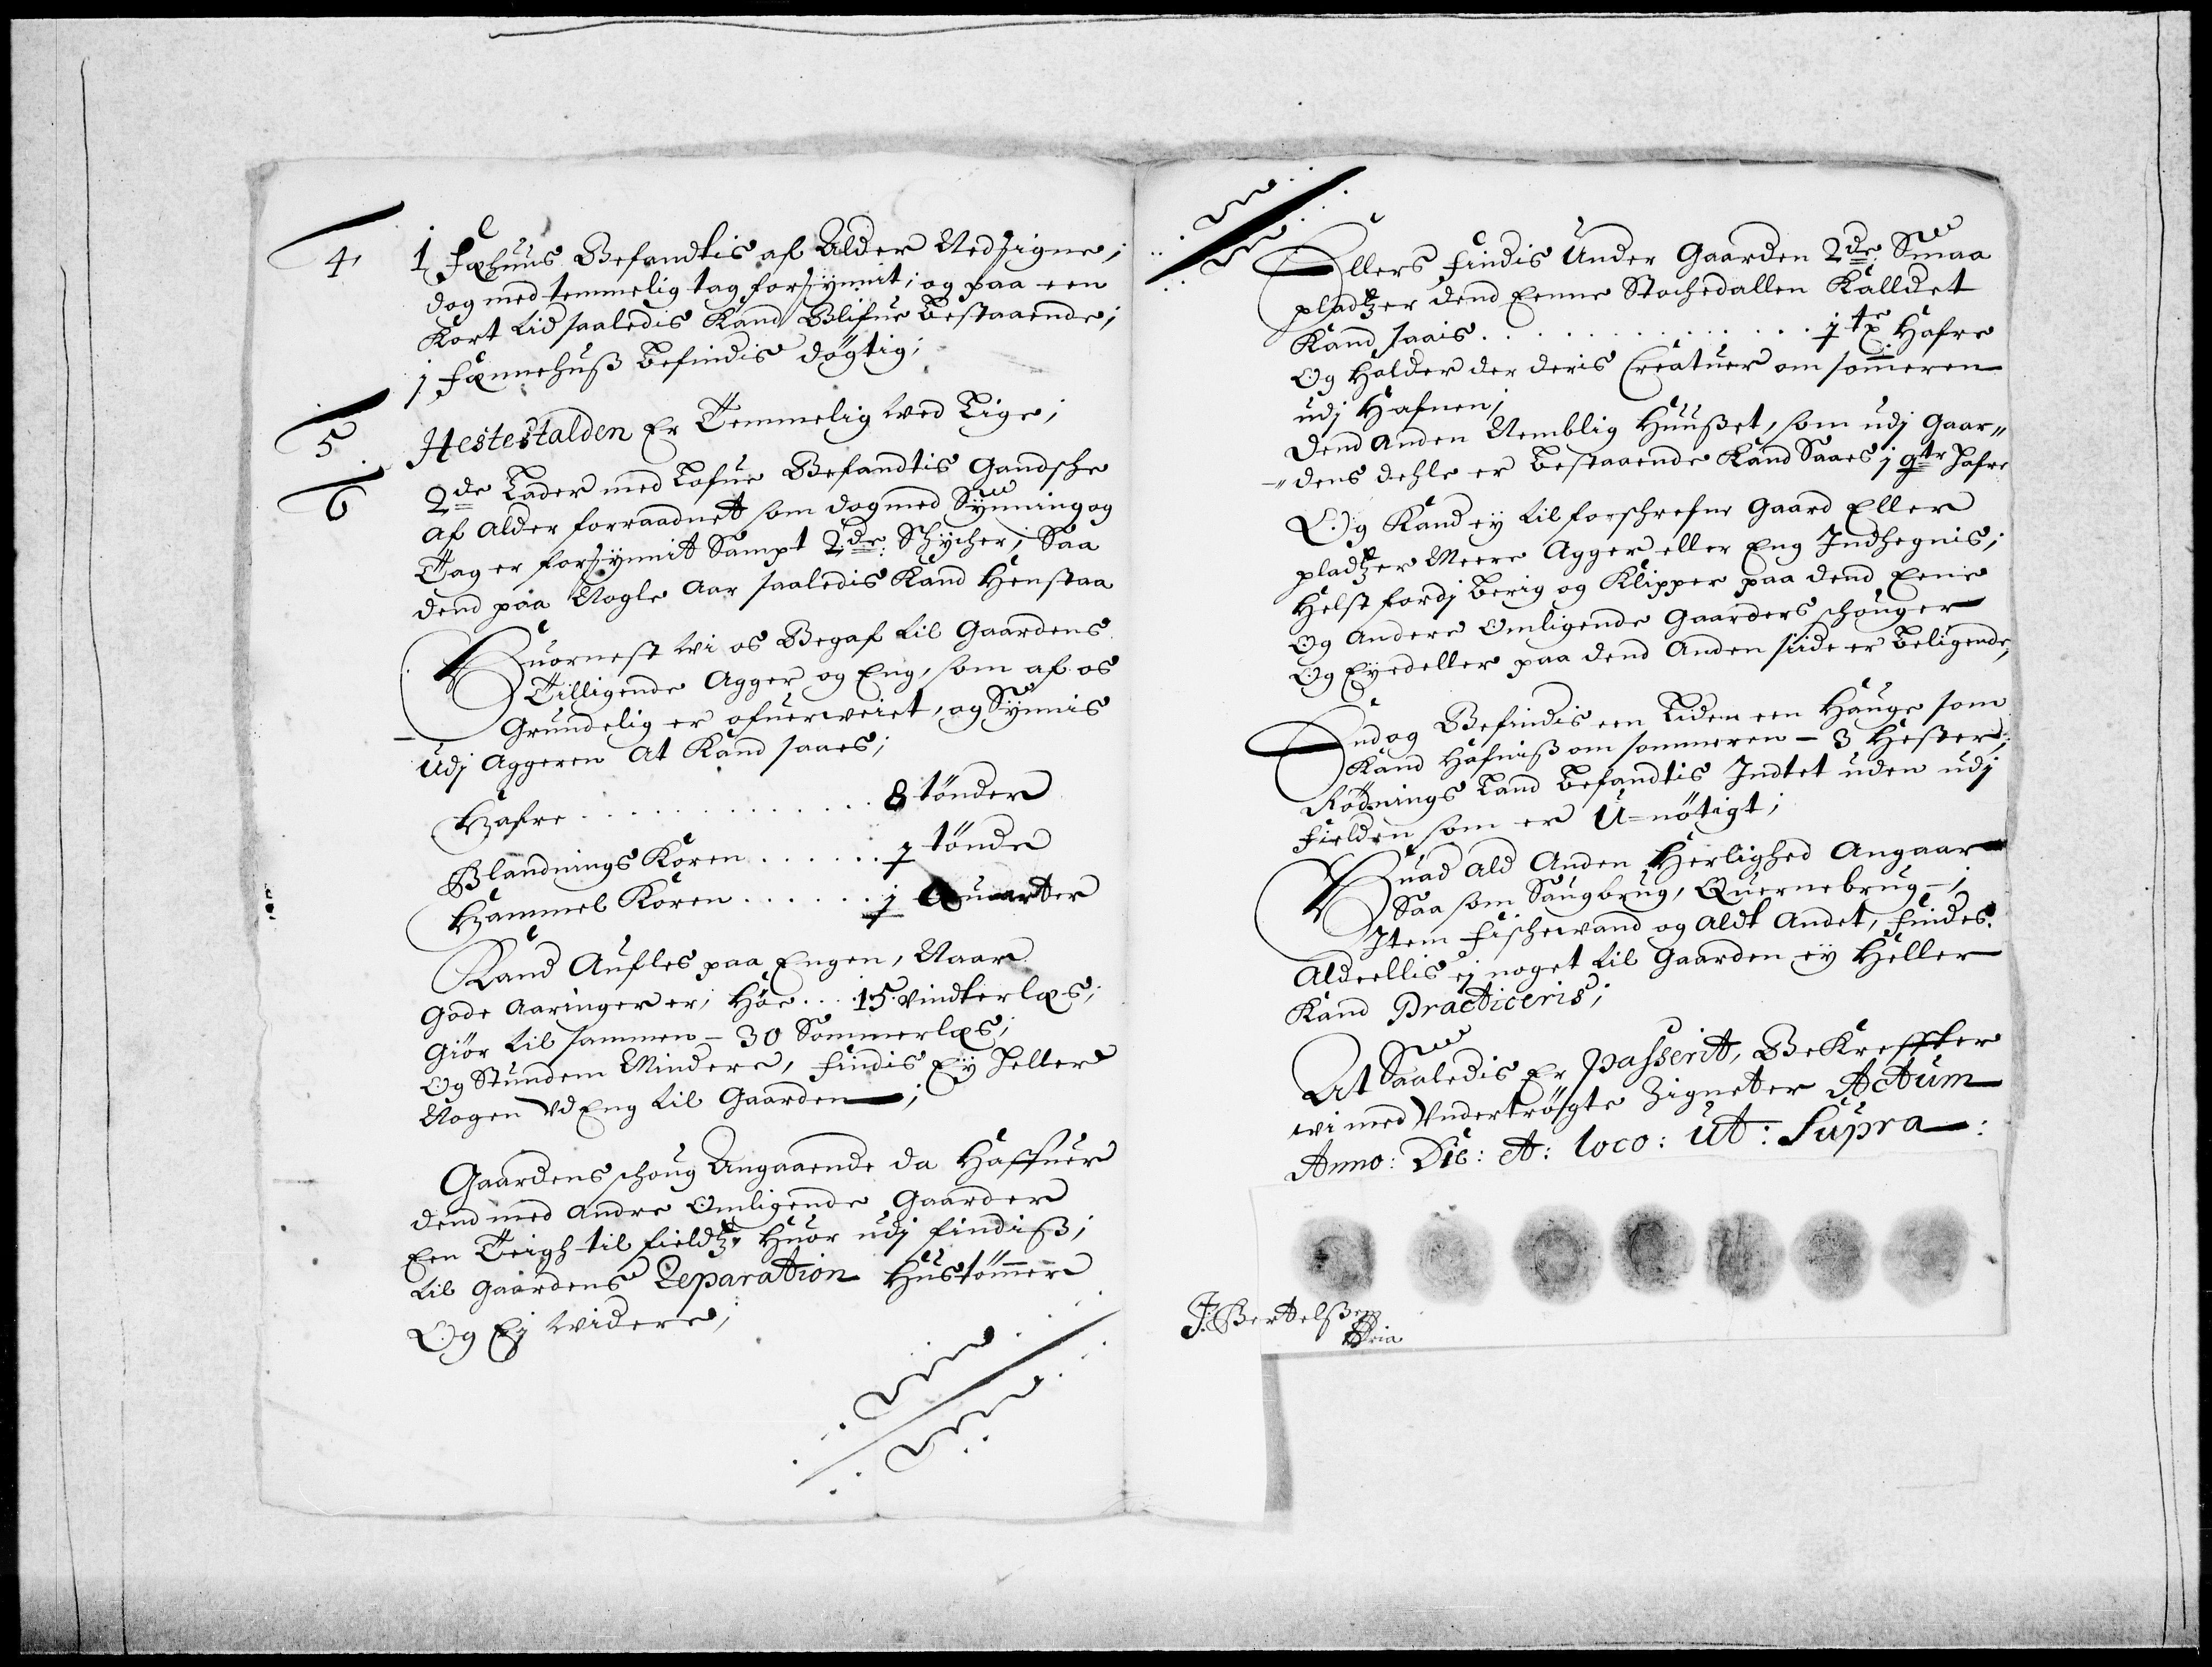 4.
1 Fæhuus Befandtis af Alder Nedsigne;
dog med temmelig tag forsynnit; og paa een
Kort tid saaledis Kand Blifue Bestaaende;
j Fænnehuß befindis døgtig;
5
Hestestalden Er Temmelig ved Lige;
6
2de Lader med Lofue Befandtis Gandsche
af Alder forraadnet som dog med Synning og
Tag er forsynnit Sampt 2de: Schycher; Saa
dend paa Nogle Aar saaledis Kand Henstaa
Huornest Wi os Begaf til Gaardens
Tilligende Agger og Eng, som af os
Grundelig er ofuerveiet, og Synnis
Udj Aggeren At Kand saaes;
Hafre . . . . . . . . . . . . . 8 tønder
Blandnings Koren . . . . . . 1 tønde
Hammel Koren . . . . . . 1 Quartter
Kand Aufles paa Engen, Naar
Gode Aaringer er; Høe . . . 15. Vindterlæs;
Giør til sammen – 30 Sommerlæs;
Og Stundem Mindere, findis Ey Heller
Nogen Vd Eng til Gaarden;
Gaardens schoug Angaaende da Haffuer
dend med Andre Omligende Gaarder
Een Teigh til fieldtz, Huor udj findiß;
til Gaardens Reparation Hustømmer
Og Ej Widere;
Ellers findis Under Gaarden 2de: Smaa
pladtzer dend Eenne Stochedallen Kalldet
Kand saais . . . . . . . . . . . . . . 1 tr. Hafre
Og Holder der deris Creatuer om someren
udj Hafnen;
Dend Anden Nemblig Huußet, som udj Gaar„
„dens dehle er bestaaende Kand Saaes j qtr Hafre
Og Kand ey til forschrefne Gaard Eller
pladtzer Meere Agger eller Eng Indhegnis;
Helst fordj Berig og Klipper paa dend Eene
Og Andere Omligende Gaarders schouger
Og Eyedeller paa dend Anden siide er beligende;
Endog Befindis een Liden een Hauge som
Kand Hafniß om sommeren – 3 Hester;
Rødnings Land befandtis Indtet uden udj
Fielden som er U=nøtigt;
Huad Ald Anden Herlighed Angaar
Saa som Saugbrug, Quernebrug –;
Item Fischevand og Aldt Andet, findes
Aldeellis ej noget til Gaarden ey Heller
Kand Practiceris;
At Saaledis Er passerit, BeKreffter
wi med Vndertrøgte Zigneter Actum
Anno: Die: et: loco: ut: Supra:
J: Bertelßen